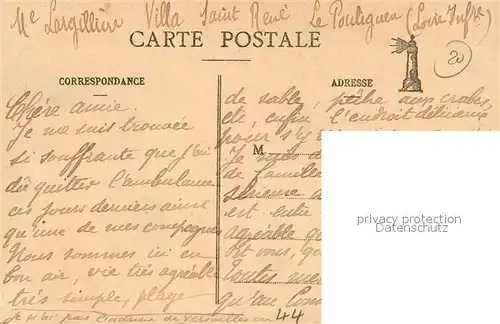 Me Largillière Villa Saint René Le Pouliguen (Loire Infre)
CARTE POSTALE
20
CORRESPONDANCE
ADRESSE
Chère amie.
Je me suis trouvée
si souffrante que j'ai
dû quitter l'ambulance
ces jours derniers ainsi
qu'une de mes compagnes
Nous sommes ici en
bon air, vie très agréable
très simple, plage
de sable, pêche aux crabes
etc, enfin l'endroit délicieux
pour s'y
M
Je suis
de famille
sérieuse
est entre
agréable
Et vous,
toutes mes
qu'au
je n'ai pas l'adresse de Versailles
44
privacy protection
VARIOUS_PLACEHOLDER